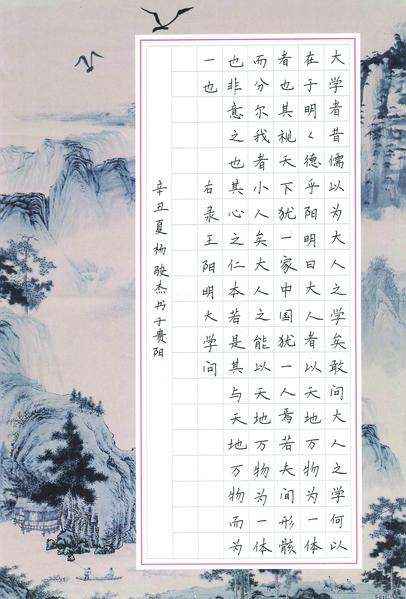 大学者昔儒以为大人之学矣敢问大人之学何以
在于明々德乎阳明曰大人者以天地万物为一体
者也其视天下犹一家中国犹一人焉若夫间形骸
而分尔我者小人矣大人之能以天地万物为一体
也非意之也其心之仁本若是其与天地万物而为
一也 右录王阳明大学问
辛丑夏杨骏杰书于贵阳